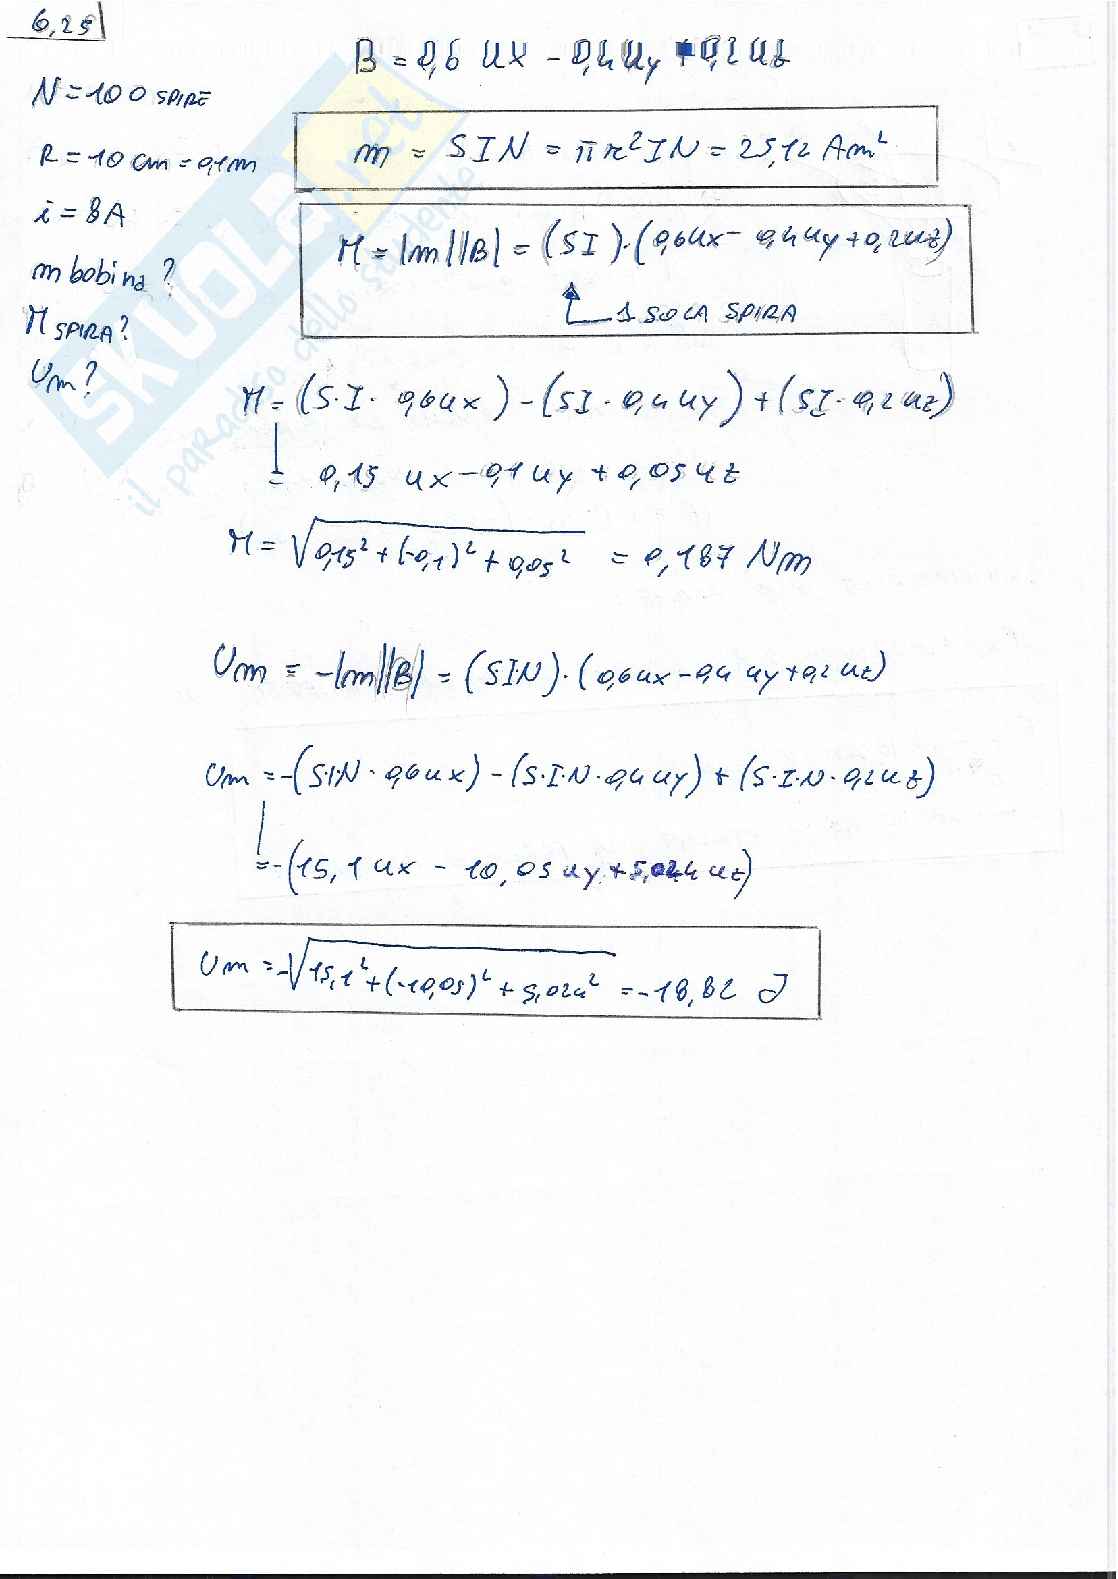 6,25
B = 0,6 ux - 0,4 uy + 0,2 uz
N = 100 SPIRE
R = 10 cm = 0,1 m
i = 8A
m bobina ?
M SPIRA ?
Um ?
m = SIN = πr²IN = 25,12 Am²
M = |m||B| = (SI)·(0,6ux - 0,4uy + 0,2uz)
1 SOLA SPIRA
M = (S·I· 0,6ux) - (SI · 0,4 uy) + (SI· 0,2 uz)
= 0,15 ux - 0,1 uy + 0,05 uz
M = √0,15² + (-0,1)² + 0,05² = 0,187 Nm
Um = -|m||B| = (SIN)·(0,6ux - 0,4 uy + 0,2 uz)
Um = -(S·I·N · 0,6ux) - (S·I·N·0,4uy) + (S·I·N·0,2uz)
= -(15,1 ux - 10,05 uy + 5,024 uz)
Um = -√15,1² + (-10,05)² + 5,024² = -18,82 J
SKUOLA.net
il paradiso dello studente